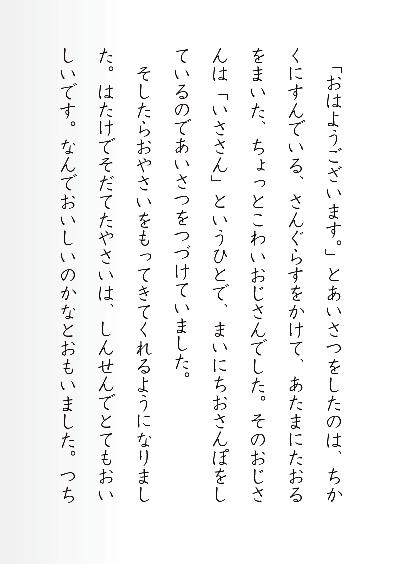 「おはようございます。」とあいさつをしたのは、ちか
くにすんでいる、さんぐらすをかけて、あたまにたおる
をまいた、ちょっとこわいおじさんでした。そのおじさ
んは「いささん」というひとで、まいにちおさんぽをし
ているのであいさつをつづけていました。
そしたらおやさいをもってきてくれるようになりまし
た。はたけでそだてたやさいは、しんせんでとてもおい
しいです。なんでおいしいのかなとおもいました。つち